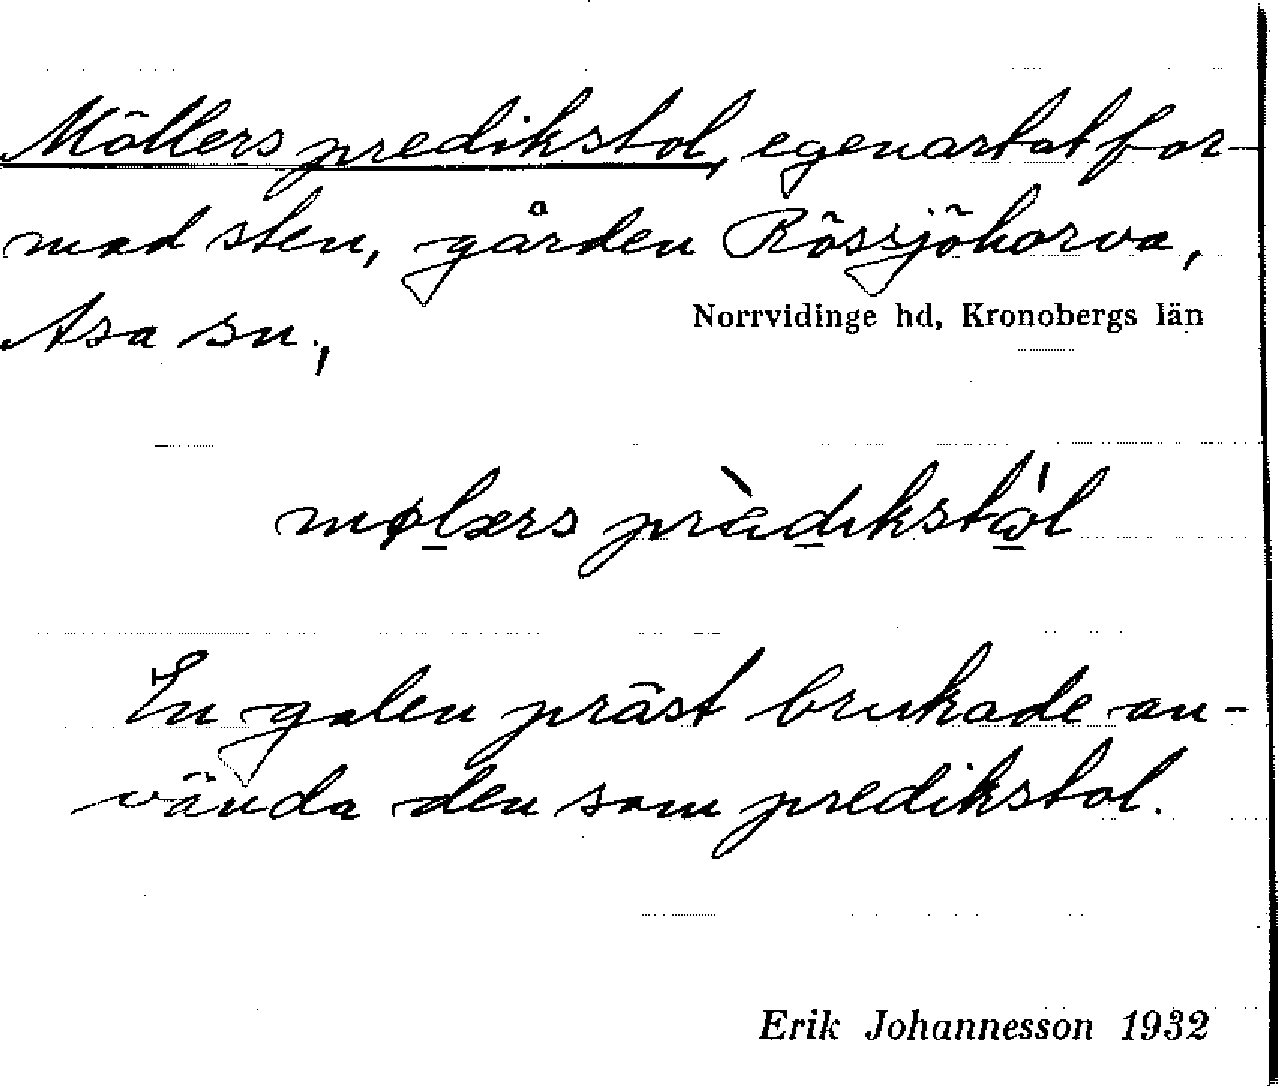 Möllers predikstol, egenartat for-
mad sten, gården Rössjöhorva,
Asa sn.,
Norrvidinge hd, Kronobergs län
mølærs prædikstol
En galen präst brukade an-
vända den som predikstol.
Erik Johannesson 1932